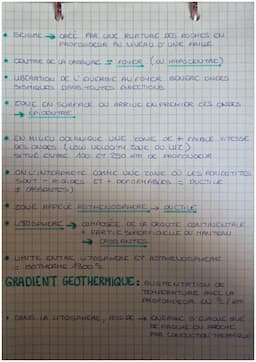 • SEISME → CRÉÉ PAR UNE RUPTURE DES ROCHES EN
PROFONDEUR AU NIVEAU D'UNE FAILLE
• CENTRE DE LA = FOYER (OU HYPOCENTRE)
• LIBERATION DE L'ENERGIE AU FOYER GENERE ONDES
SISMIQUES DANS TOUTES DIRECTIONS
• ZONE EN SURFACE OU ARRIVE EN PREMIER CES ONDES
→ EPICENTRE
• EN MILIEU OCEANIQUE UNE ZONE DE + FAIBLE VITESSE
DES ONDES (LOW VELOCITY ZONE OU LVZ)
SITUÉ ENTRE 100 ET 250 KM DE PROFONDEUR
• ON L'INTERPRETE COMME UNE ZONE OÙ LES PERIDOTITES
SONT - RIGIDES ET + DEFORMABLES = DUCTILE
(≠ CASSANTES)
• ZONE APPELÉ ASTHENOSPHERE → DUCTILE
• LITOSPHERE → COMPOSÉE DE LA CROUTE CONTINENTALE
+ PARTIE SUPERFICIELLE DU MANTEAU
→ CASSANTES
• LIMITE ENTRE LITOSPHERE ET ASTHENOSPHERE
= ISOTHERME 1300°C
GRADIENT GEOTHERMIQUE: AUGMENTATION DE
TEMPERATURE AVEC LA
PROFONDEUR EN °C/KM
• DANS LA LITOSPHERE, → ENERGIE D'
DE PROCHE EN PROCHE
PAR CONDUCTION THERMIQUE